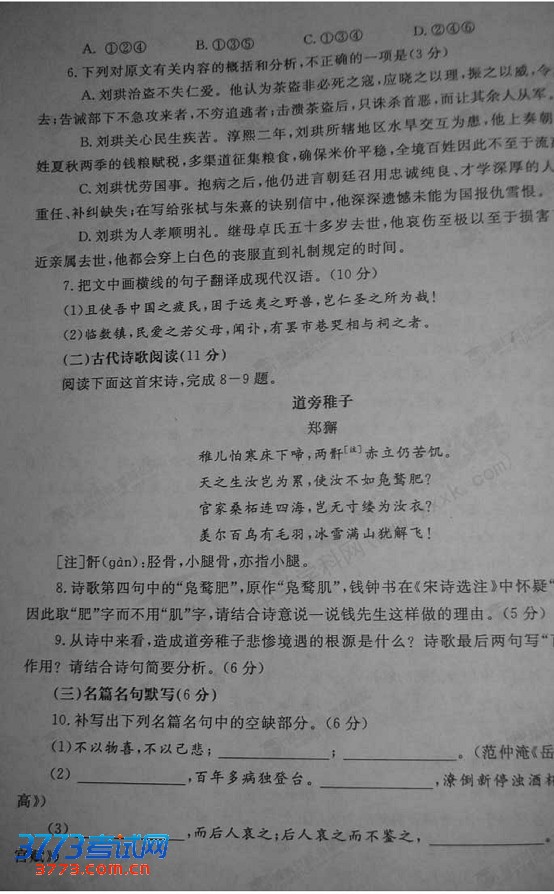 A. ①②④ B. ①③⑤ C. ①③④ D. ②④⑥
6.下列对原文有关内容的概括和分析,不正确的一项是(3分)
A.刘珙治盗不失仁爱。他认为茶盗非必死之寇,应晓之以理,振之以威,令
去;告诫部下不急攻来者,不穷追逃者;击溃茶盗后,只诛杀首恶,而让其余人从军。
B.刘珙关心民生疾苦。淳熙二年,刘珙所辖地区水旱交互为患,他上奏朝
姓夏秋两季的钱粮赋税,多渠道征集粮食,确保米价平稳,全境百姓因此不至于流
C.刘珙忧劳国事。抱病之后,他仍进言朝廷召用忠诚纯良、才学深厚的人
重任、补纠缺失;在写给张栻与朱熹的诀别信中,他深深遗憾未能为国报仇雪恨。
D.刘珙为人孝顺明礼。继母卓氏五十多岁去世,他哀伤至极以至于损害
近亲属去世,他都会穿上白色的丧服直到礼制规定的时间。
7.把文中画横线的句子翻译成现代汉语。(10分)
(1)且使吾中国之疲民,困于远夷之野兽,岂仁圣之所为哉!
(2)临数镇,民爱之若父母,闻讣,有罢市巷哭相与祠之者。
(二)古代诗歌阅读(11分)
阅读下面这首宋诗,完成8-9题。
道旁稚子
郑獬
稚儿怕寒床下啼,两骭[注]赤立仍苦饥。
天之生汝岂为累,使汝不如凫鹜肥?
官家桑柘连四海,岂无寸缕为汝衣?
羡尔百鸟有毛羽,冰雪满山犹解飞!
[注]骭(gàn):胫骨,小腿骨,亦指小腿。
8.诗歌第四句中的“凫鹜肥”,原作“凫鹜肌”,钱钟书在《宋诗选注》中怀疑“
因此取“肥”字而不用“肌”字,请结合诗意说一说钱先生这样做的理由。(5分)
9.从诗中来看,造成道旁稚子悲惨境遇的根源是什么?诗歌最后两句写“
作用?请结合诗句简要分析。(6分)
(三)名篇名句默写(6分)
10.补写出下列名篇名句中的空缺部分。(6分)
(1)不以物喜,不以己悲;____________;____________。(范仲淹《岳
(2)____________,百年多病独登台。____________,潦倒新停浊酒杯
高》)
(3)____________,而后人哀之;后人哀之而不鉴之,____________。
宫赋》)
3773考试网
3773.com.cn